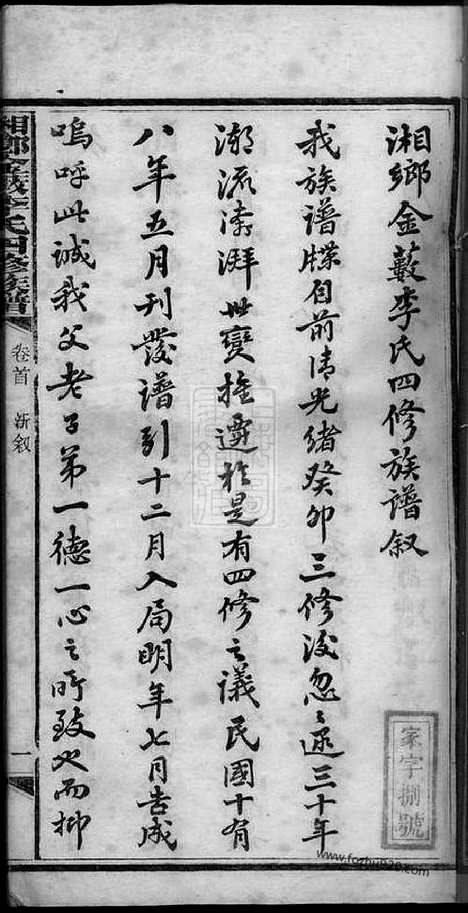 湘鄉金藪李氏四修族譜叙
我族譜牒自前清光緒癸卯三修後忽忽逾三十年
潮流澎湃世變推遷於是有四修之議民國十有
八年五月刊發譜引十二月入局明年七月告成
嗚呼此誠我父老子弟一德一心之所致也而抑
湘鄉金藪李氏四修族譜
卷首
新叙
一
家字捌號
www.fozhu920.com